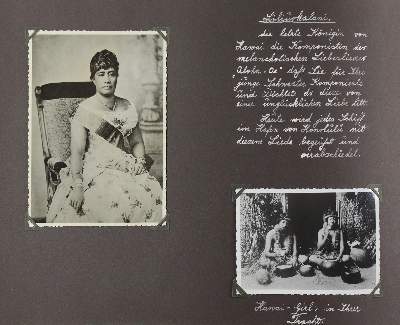 Liliuokalani.
die letzte Königin von
Hawai. die Komponistin des
melancholischen Liebesliedes
"Aloha-Oe" daß Sie für Ihre
junge Schwester komponierte
und dichtete da diese von
einer unglücklichen Liebe litt.
Heute wird jedes Schiff
im Hafen von Honolulu mit
diesem Liede begrüßt und
verabschiedet.
Hawai-Girl, in Ihrer
Tracht.